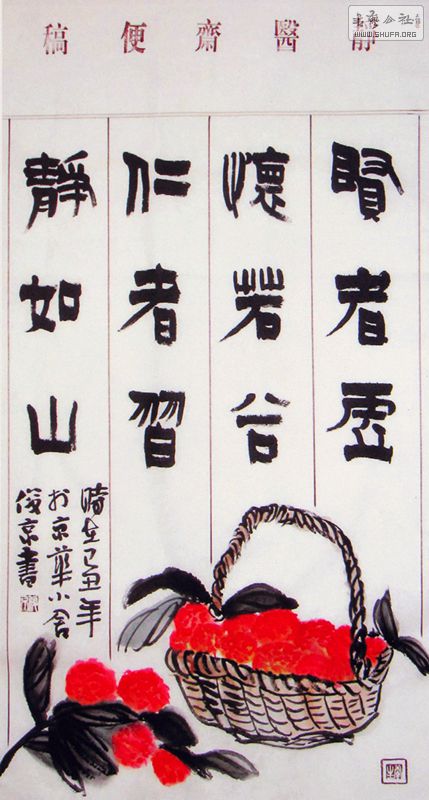 WWW.SHUFA.ORG
靜醫齋便稿
賢者虛
懷若谷
仁者習
靜如山
時在己丑年
於京華小舍
俊京書